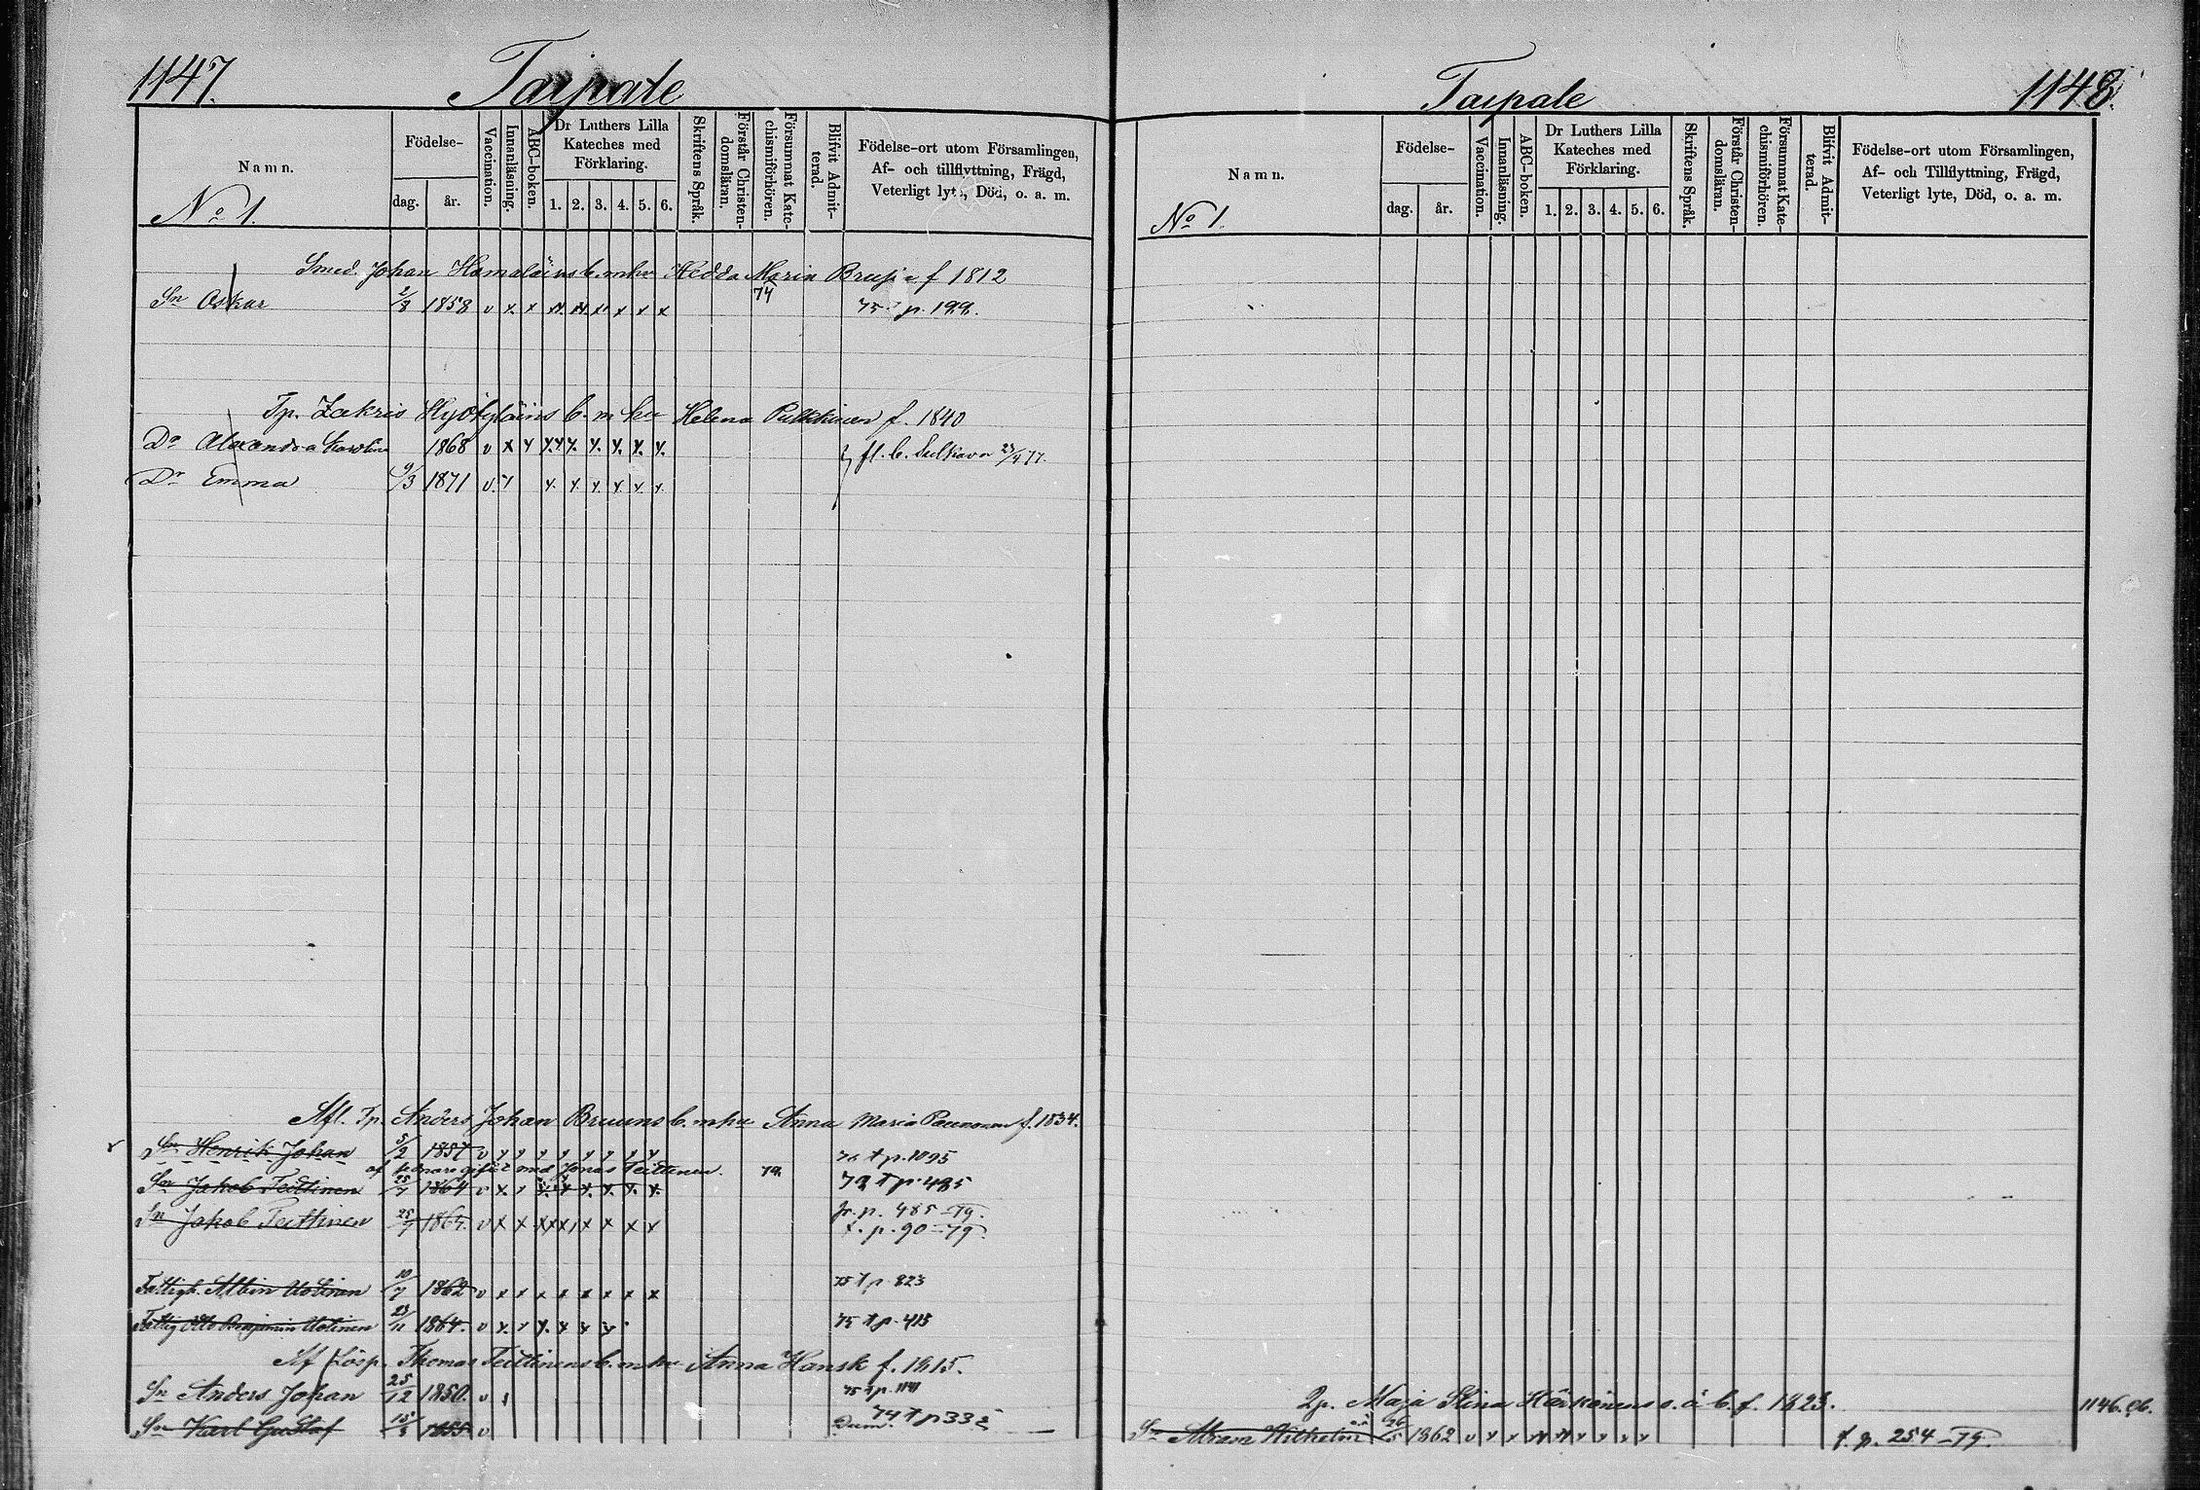 1147.
Taipale
Namn.
Födelse-
dag. år.
Vaccination.
Innanläsning.
ABC-boken.
Dr Luthers Lilla
Kateches med
Förklaring.
1. 2. 3. 4. 5. 6.
Skriftens Språk.
Förstår Christen-
domsläran.
Försummat Kate-
chismiförhören.
Blifvit Admit-
terad.
Födelse-ort utom Församlingen,
Af- och tillflyttning, Frägd,
Veterligt lyte, Död, o. a. m.
No 1.
Smed. Johan Hamaläins b. m hu Hedda Maria f 1812
Sn Oskar 2/8 1858 v x x x x x x x 74 75 p. 199.
Tp. Zakris Hyötyläins b. m hu Helena Pulkkinen f. 1840
Dr Alexandra Karolina 1868 v x x x x x x x x fl. b. Sulkava 77.
Dr Emma 9/3 1871 v x x x x x x x
Afl. Tp. Anders Johan Bruuns b. m hu Anna Maria Paunonen f. 1834.
Sn Henrik Johan 5/2 1857 v x x x x x x x x t p. 1095
af gifte med Jonas Teittinen.
Sn Jakob Teittinen 25/7 1864 v x x x x x x x x t p. 485
Sn Jakob Teittinen 25/7 1864. v x x x x x x x x fr. p. 485 – 79.
t. p. 90 – 79.
Fattigh. Albin Uotinen 10/7 1862 v x x x x x x x x 75 t p. 823
Fattig Otto Benjamin Uotinen 23/11 1864. v x x x x x x 75 t p. 415
Af Lösp. Thomas Teittinens b. m hu Anna Hansk f. 1815.
Sn Anders Johan 25/12 1850. v 75 t p. 1141
Sn Karl Gustaf 1855 v 74 t p 335
1148.
Taipale
Namn.
Födelse-
dag. år.
Vaccination.
Innanläsning.
ABC-boken.
Dr Luthers Lilla
Kateches med
Förklaring.
1. 2. 3. 4. 5. 6.
Skriftens Språk.
Förstår Christen-
domsläran.
Försummat Kate-
chismiförhören.
Blifvit Admit-
terad.
Födelse-ort utom Församlingen,
Af- och Tillflyttning, Frägd,
Veterligt lyte, Död, o. a. m.
No 1.
Qp. Maja Stina Härkönens o. ä. b. f. 1823. 1146.
Sn Wilhelm 26/5 1862 v x x x x x x x x t. p. 254 – 79.